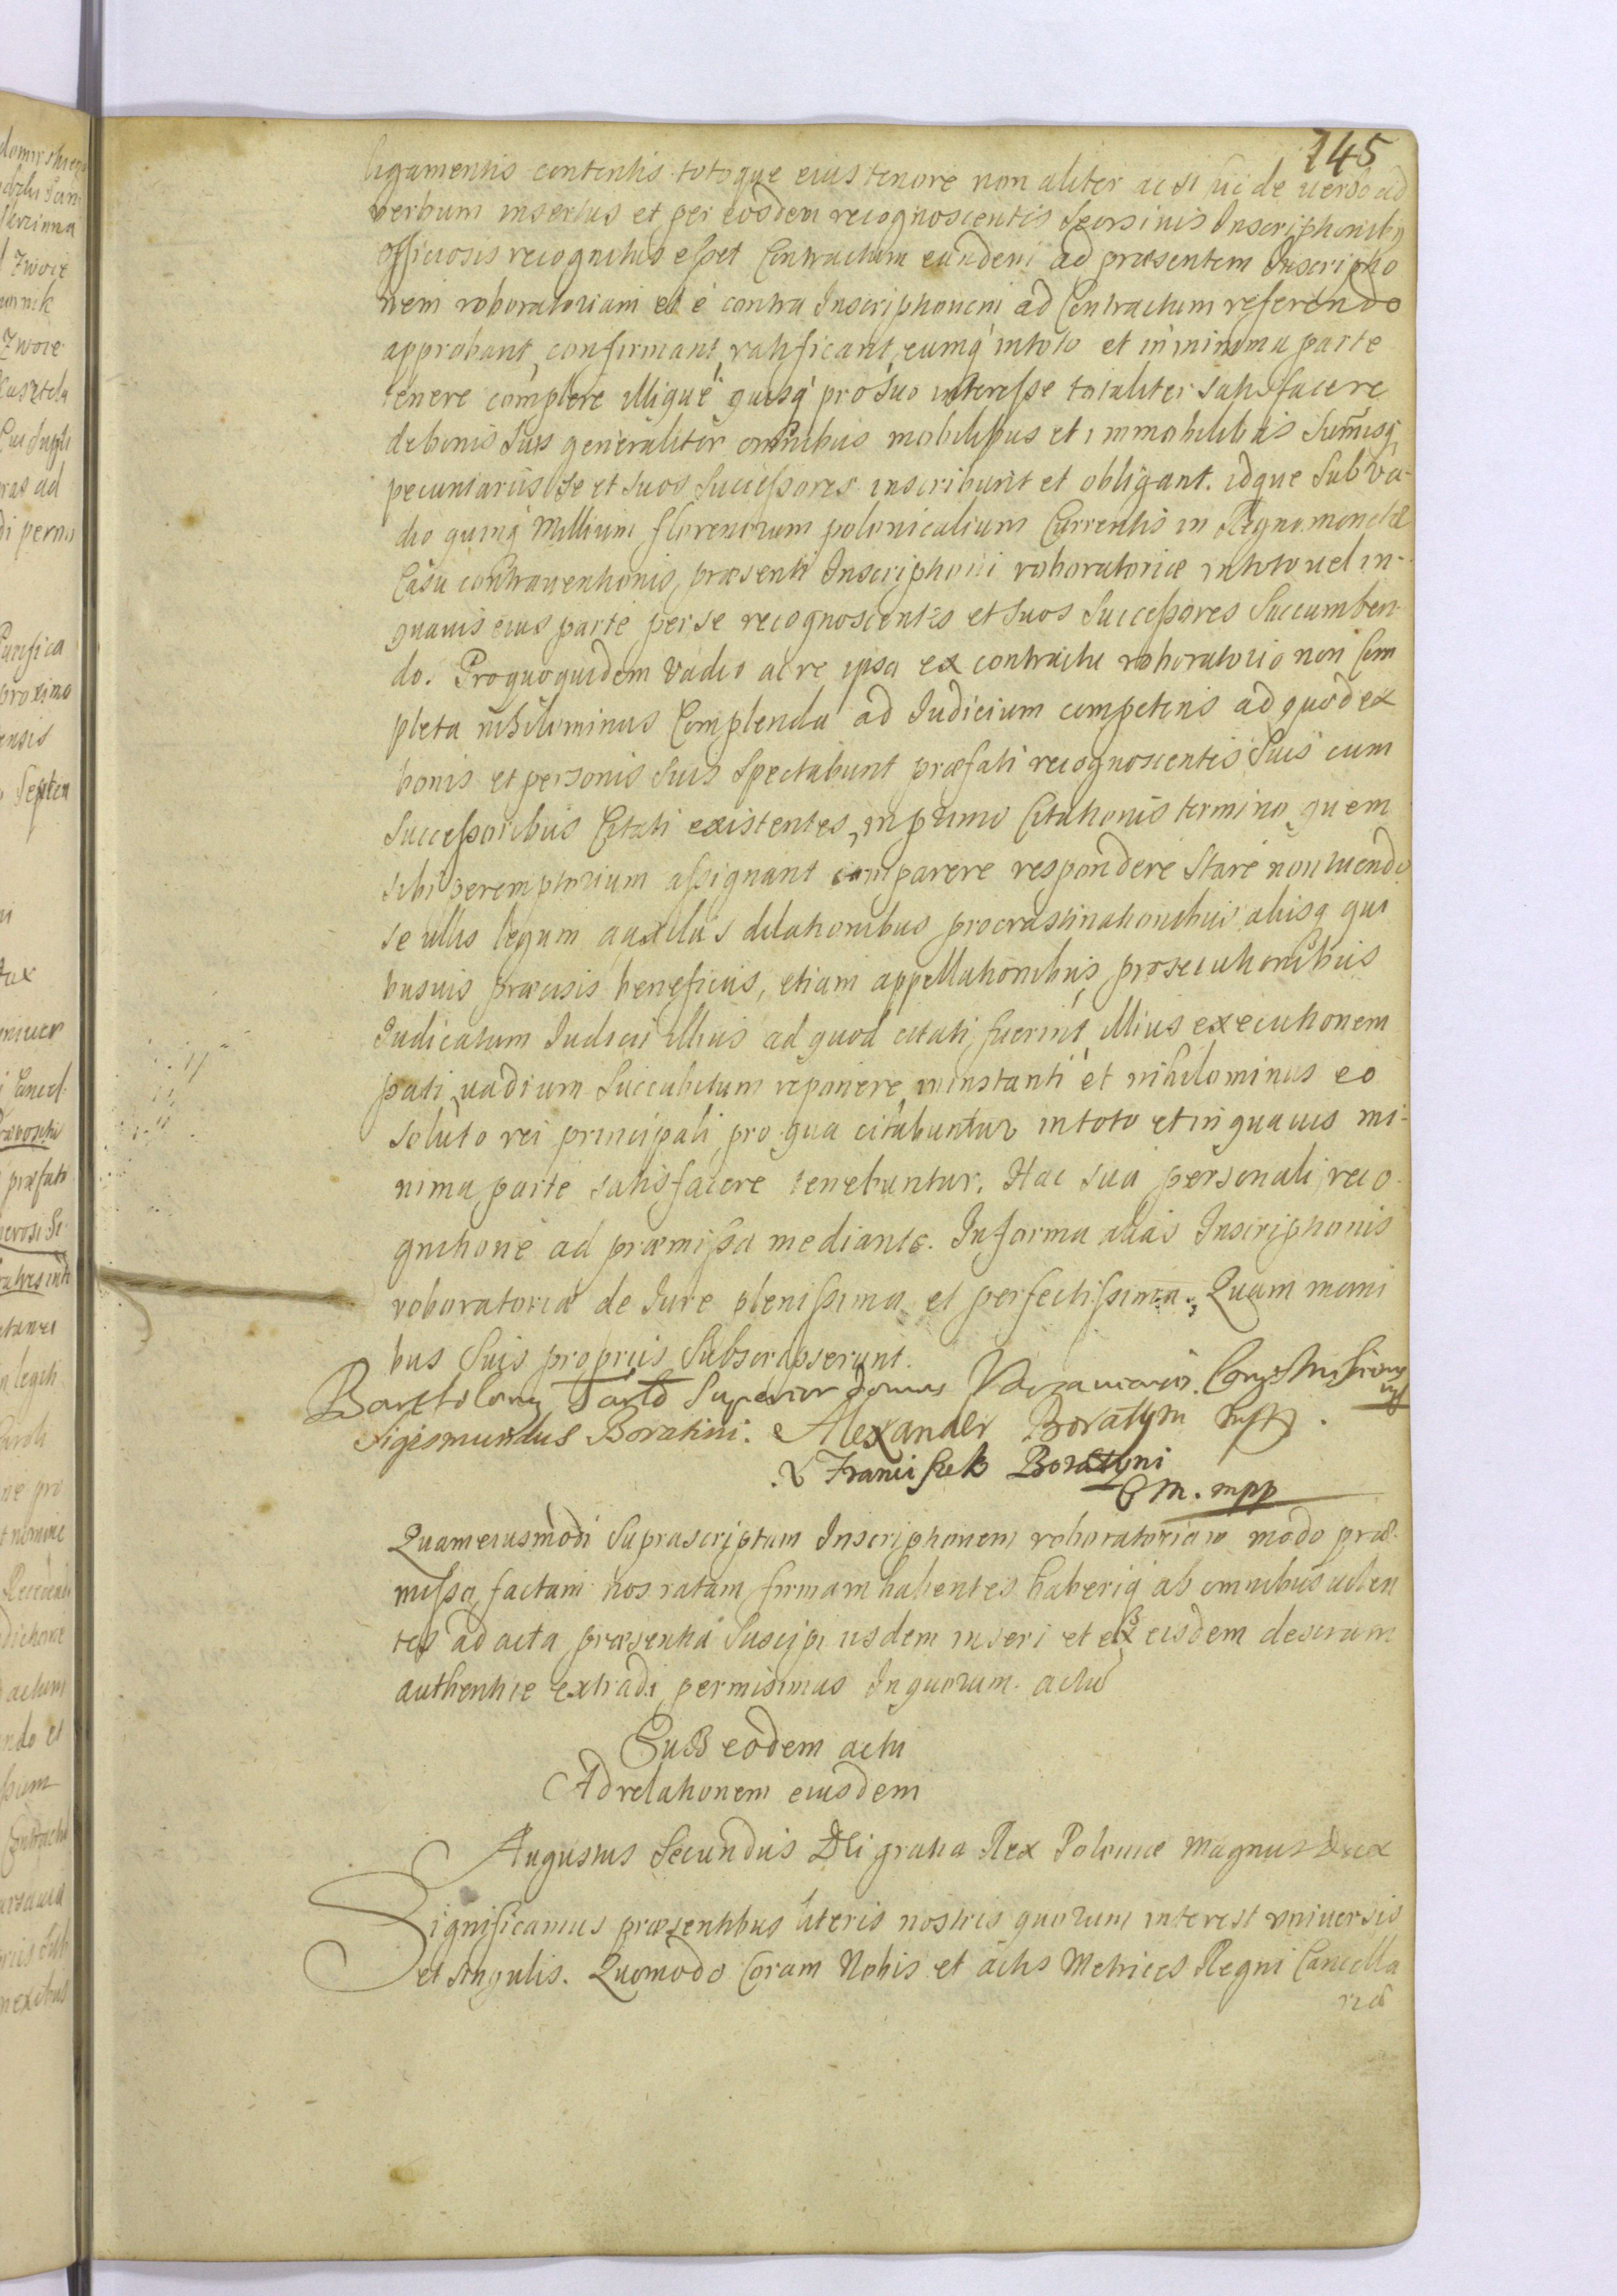 145
ligamentis contentis totoque eius tenore non aliter ac si hic de verbo ad
verbum insertus et per eosdem recognoscentes seorsivis Inscriptionibq
officiosis recognitus eſset Contractum eundem ad præsentem Inscriptio
nem roboratoriam et è contra Inscriptionem ad Contractum referendo
approbant, confirmant, ratificant, eumq́ in toto et in minima parte
tenere complere illique quisq́ pro suo intereſse totaliter satisfacere
de bonis Suis generaliter omnibus mobilibus et immobilibus Sum̃isq́
pecuniariis se et suos Succeſsores inscribunt et obligant. idque Sub va-
dio quinq́ Millium florenorum polonicalium Currentis in Regno monetæ
Casu contraventionis, præsenti Inscriptioni roboratoriæ in toto vel in-
quavis eius parte per se recognoscentes et suos Succeſsores Succumben-
do. Pro quo quidem vadio ac re ipsa ex contractu roboratorio non Com
pleta nihilominus Complenda ad Iudicium competens ad quod ex
bonis et personis suis Spectabunt præfati recognoscentes Suis cum
Succeſsoribus Citati existentes, in primo Citationis termino, quem
sibi peremptorium aſsignant comparere respondere Stare non tuendo
se ullis legum auxiliis dilationibus procrastinationibus aliisq́ qui
busvis præcisis beneficiis, etiam appellationibus, prosecutionibus
Iudicatum Iudicii illius ad quod citati fuerint, illius executionem
pati, vadium Succubitum reponere in instanti et nihilominus eo
soluto rei principali, pro qua citabuntur in toto et in quavis mi-
nima parte satisfacere tenebuntur. Hac sua personali reco-
gnitione ad præmiſsa mediante. In forma alias Inscriptionis
roboratoriæ de Iure pleniſsima et perfectiſsima. Quam mani
bus Suis propriis Subscripserunt.
Bartolomq Tarło Superior Domus Varsaviensis. Congr Miſsionis
mp
Sigismundus Boratini. Alexander Boratyni
X Franciſzek Boratyni
mpp
Quam eiusmodi Suprascriptam Inscriptionem roboratoriam modo præ-
miſso factam nos ratam firmam habentes haberiq́ ab omnibus volen
tes ad acta præsentia Suscipi iisdem inseri et ex eisdem descriptam
authentice extradi permisimus In quorum. actu
Sub eodem actu
Ad relationem eiusdem
Augustus Secundus Dei gratia Rex Poloniæ Magnus Dux
Significamus præsentibus literis nostris quorum interest vniversis
et singulis. Quomodo Coram Nobis et actis Metrices Regni Cancella
riæ